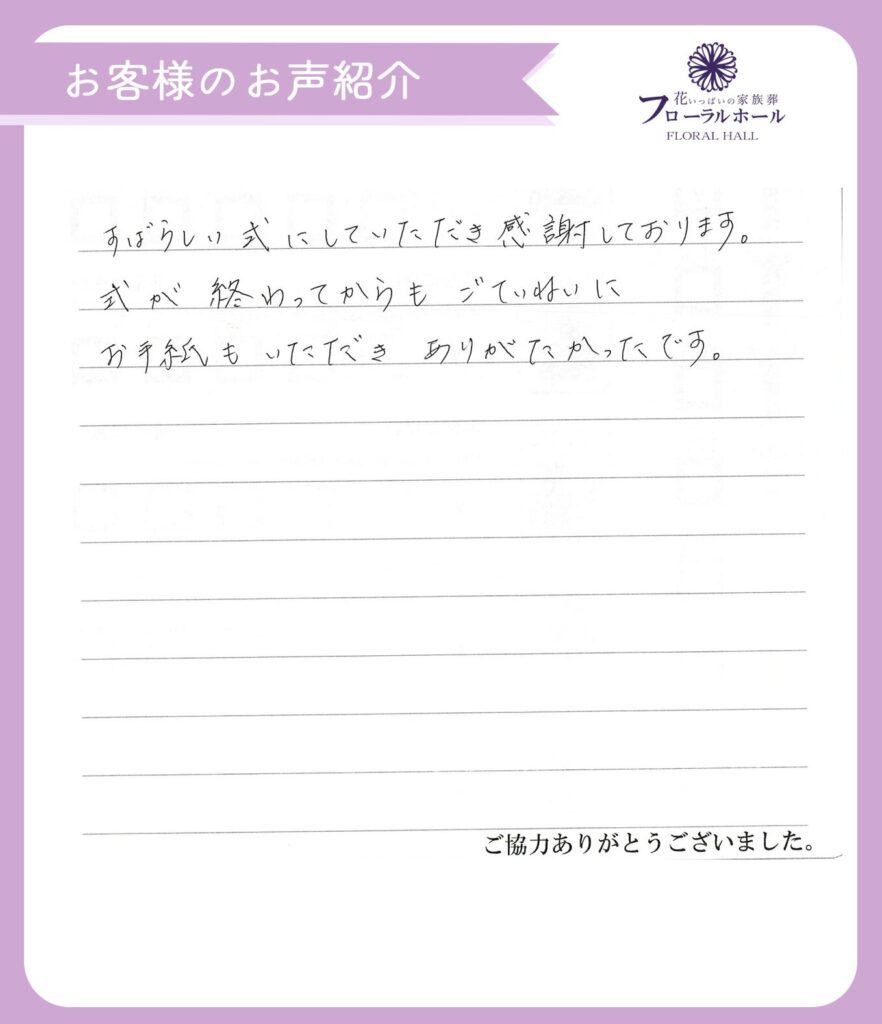 お客様のお声紹介
花いっぱいの家族葬
フローラルホール
FLORAL HALL
すばらしい式にしていただき感謝しております。
式が終わってからもごていねいに
お手紙もいただきありがたかったです。
ご協力ありがとうございました。